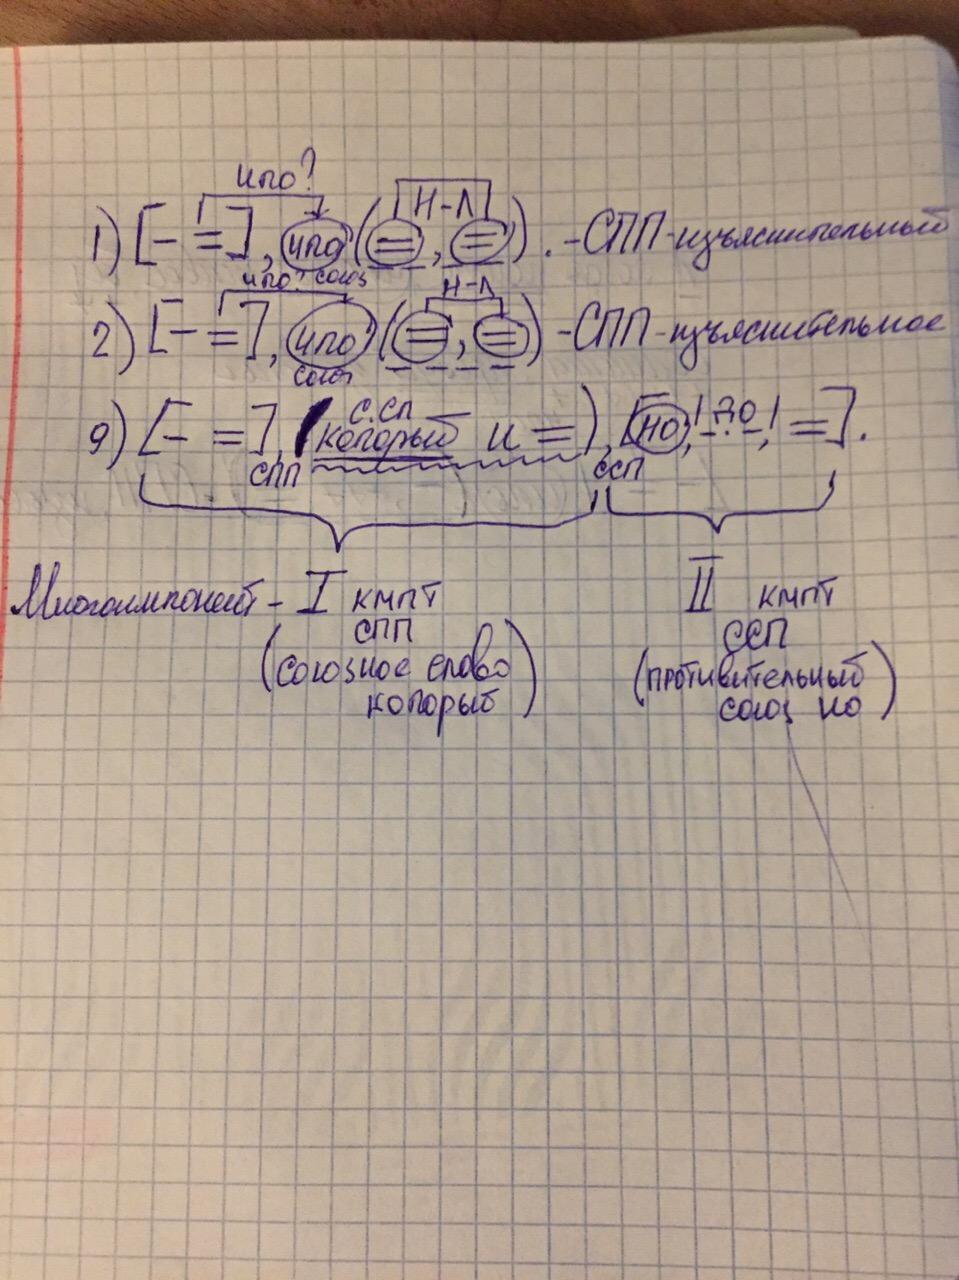 что?
1) [- =], что (=, =). - СПП-изъяснительный
Н-Л
что? союз
Н-Л
2) [- =], что (=, =) - СПП-изъяснительное
союз
с.сл
9) [- =], (который и =), [но, |ДО|, =].
СПП
ССП
Многокомпонент - I кмпт
СПП
(союзное слово
который)
II кмпт
ССП
(противительный
союз но)